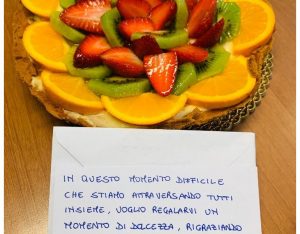 IN QUESTO MOMENTO DIFFICILE
CHE STIAMO ATTRAVERSANDO TUTTI
INSIEME, VOGLIO REGALARVI UN
MOMENTO DI DOLCEZZA, RIGRAZIANDO